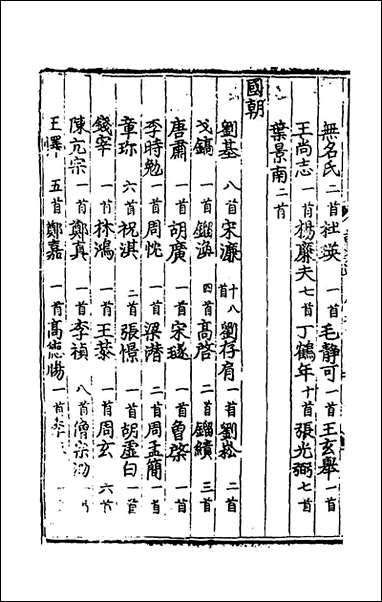 無名氏 二首 杜瑛 一首 毛靜可 一首 王玄舉 一首
王尚志 一首 楊廉夫 七首 丁鶴年 十首 張光弼 七首
葉景南 二首
國朝
劉基 八首 宋濂 十八首 劉存肩 一首 劉崧 二首
戈鎬 一首 鎦渙 四首 高啓 一首 鎦績 三首
唐肅 一首 胡廣 一首 宋璲 一首 魯棨
李時勉 一首 周忱 一首 梁潛 二首 周孟簡
章珎 六首 祝淇 二首 張憬 一首 胡虛白 一首
錢宰 一首 林鴻 一首 王恭 一首 周玄 六首
陳亢宗 一首 鄭真 一首 李禎 八首 僧宗泐
王 五首 鄭嘉 一首 高德暘 一首 李